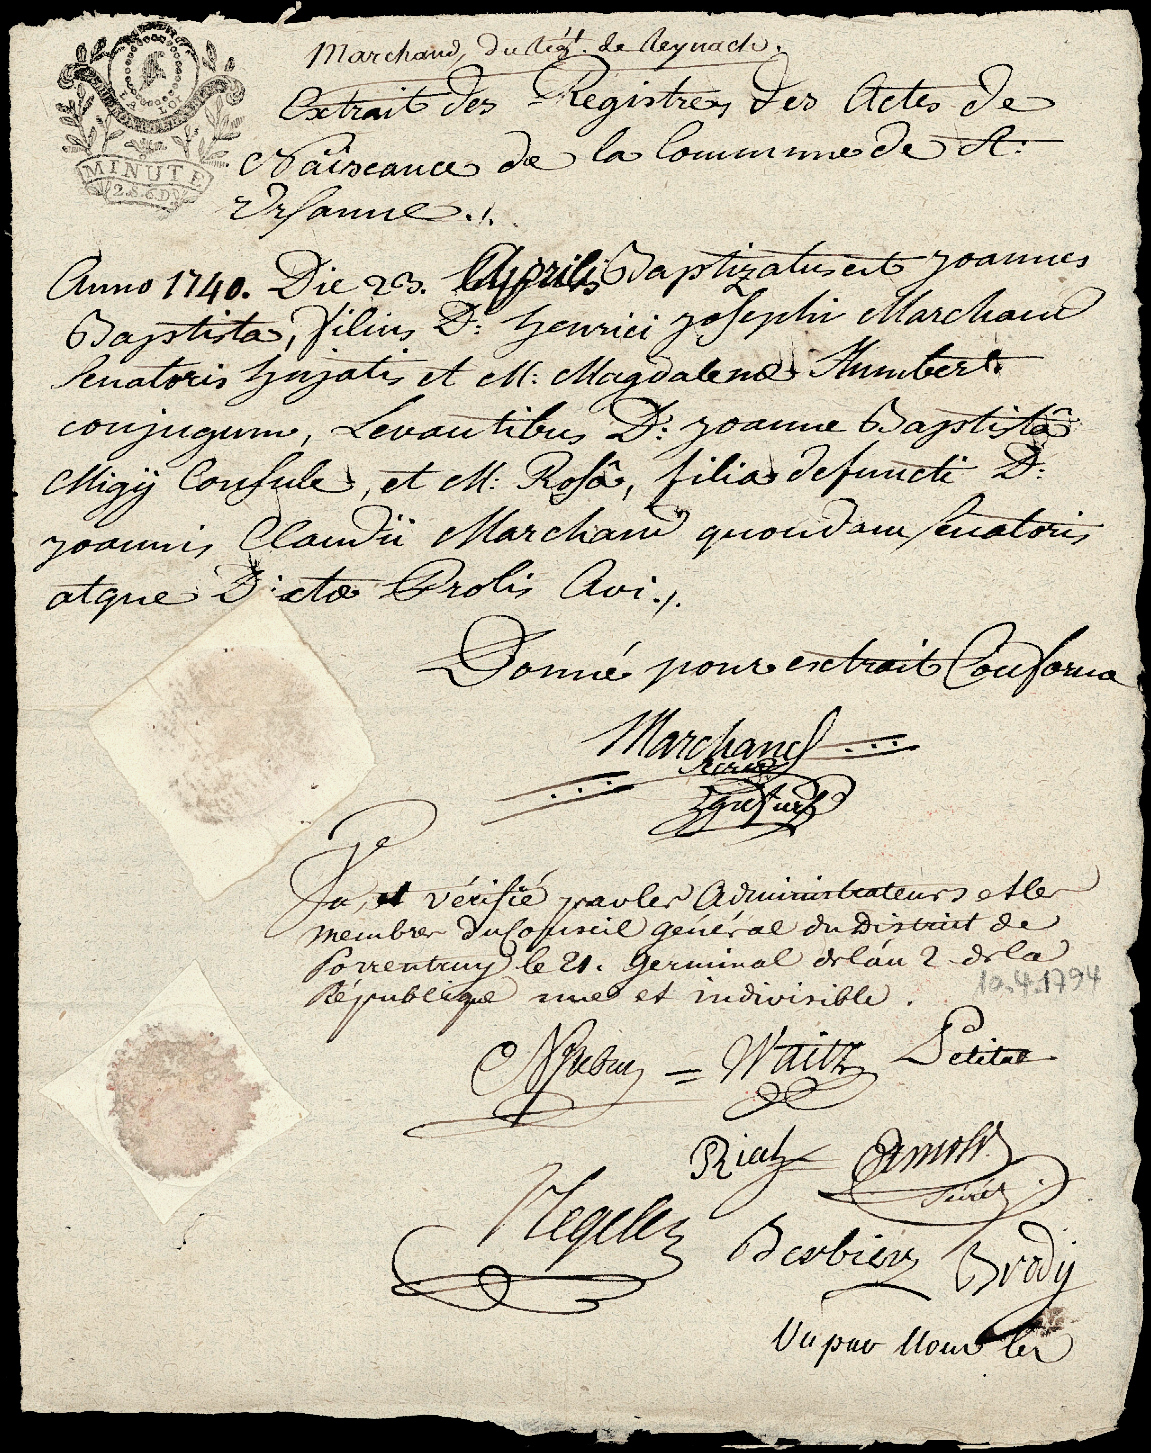 Marchand, du Rég.t de Reynach.
LA LOI
MINUTE
2.S.6.D.
Extrait des Registres des Actes de
Naissance de la Commune de St:
Ursanne ./.
Anno 1740. Die 23. Aprilis Baptizatus est Joannes
Baptista, filius D: Henrici Josephi Marchand
Senatoris hujatis et M: Magdalenæ Humbert
conjugum, Levantibus D: Joanne Baptistâ
Migÿ Consule, et M: Rosâ, filia defuncti D:
Joannis Claudii Marchand quondam Senatoris
atque Dictæ Prolis Avi ./.
Donné pour extrait Conforme
Marchand
Vu, et vérifié par les Administrateurs et les
membres du Conseil général du District de
Porrentruy le 21. Germinal de l'an 2 de la
République une et indivisible.
10.4.1794
Waitz Petitat
Riat Arnold
Secrét.
Negele Berbier Brody
Vu par Nous les